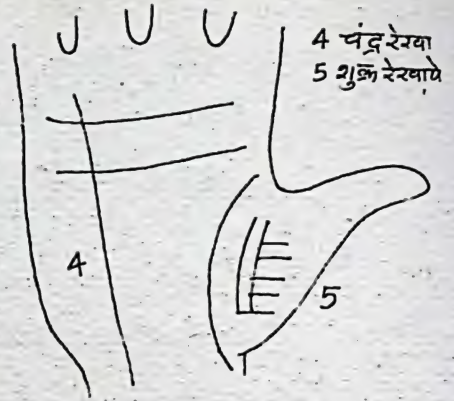 4 चंद्र रेखा
5 शुक्र रेखाये
4
5